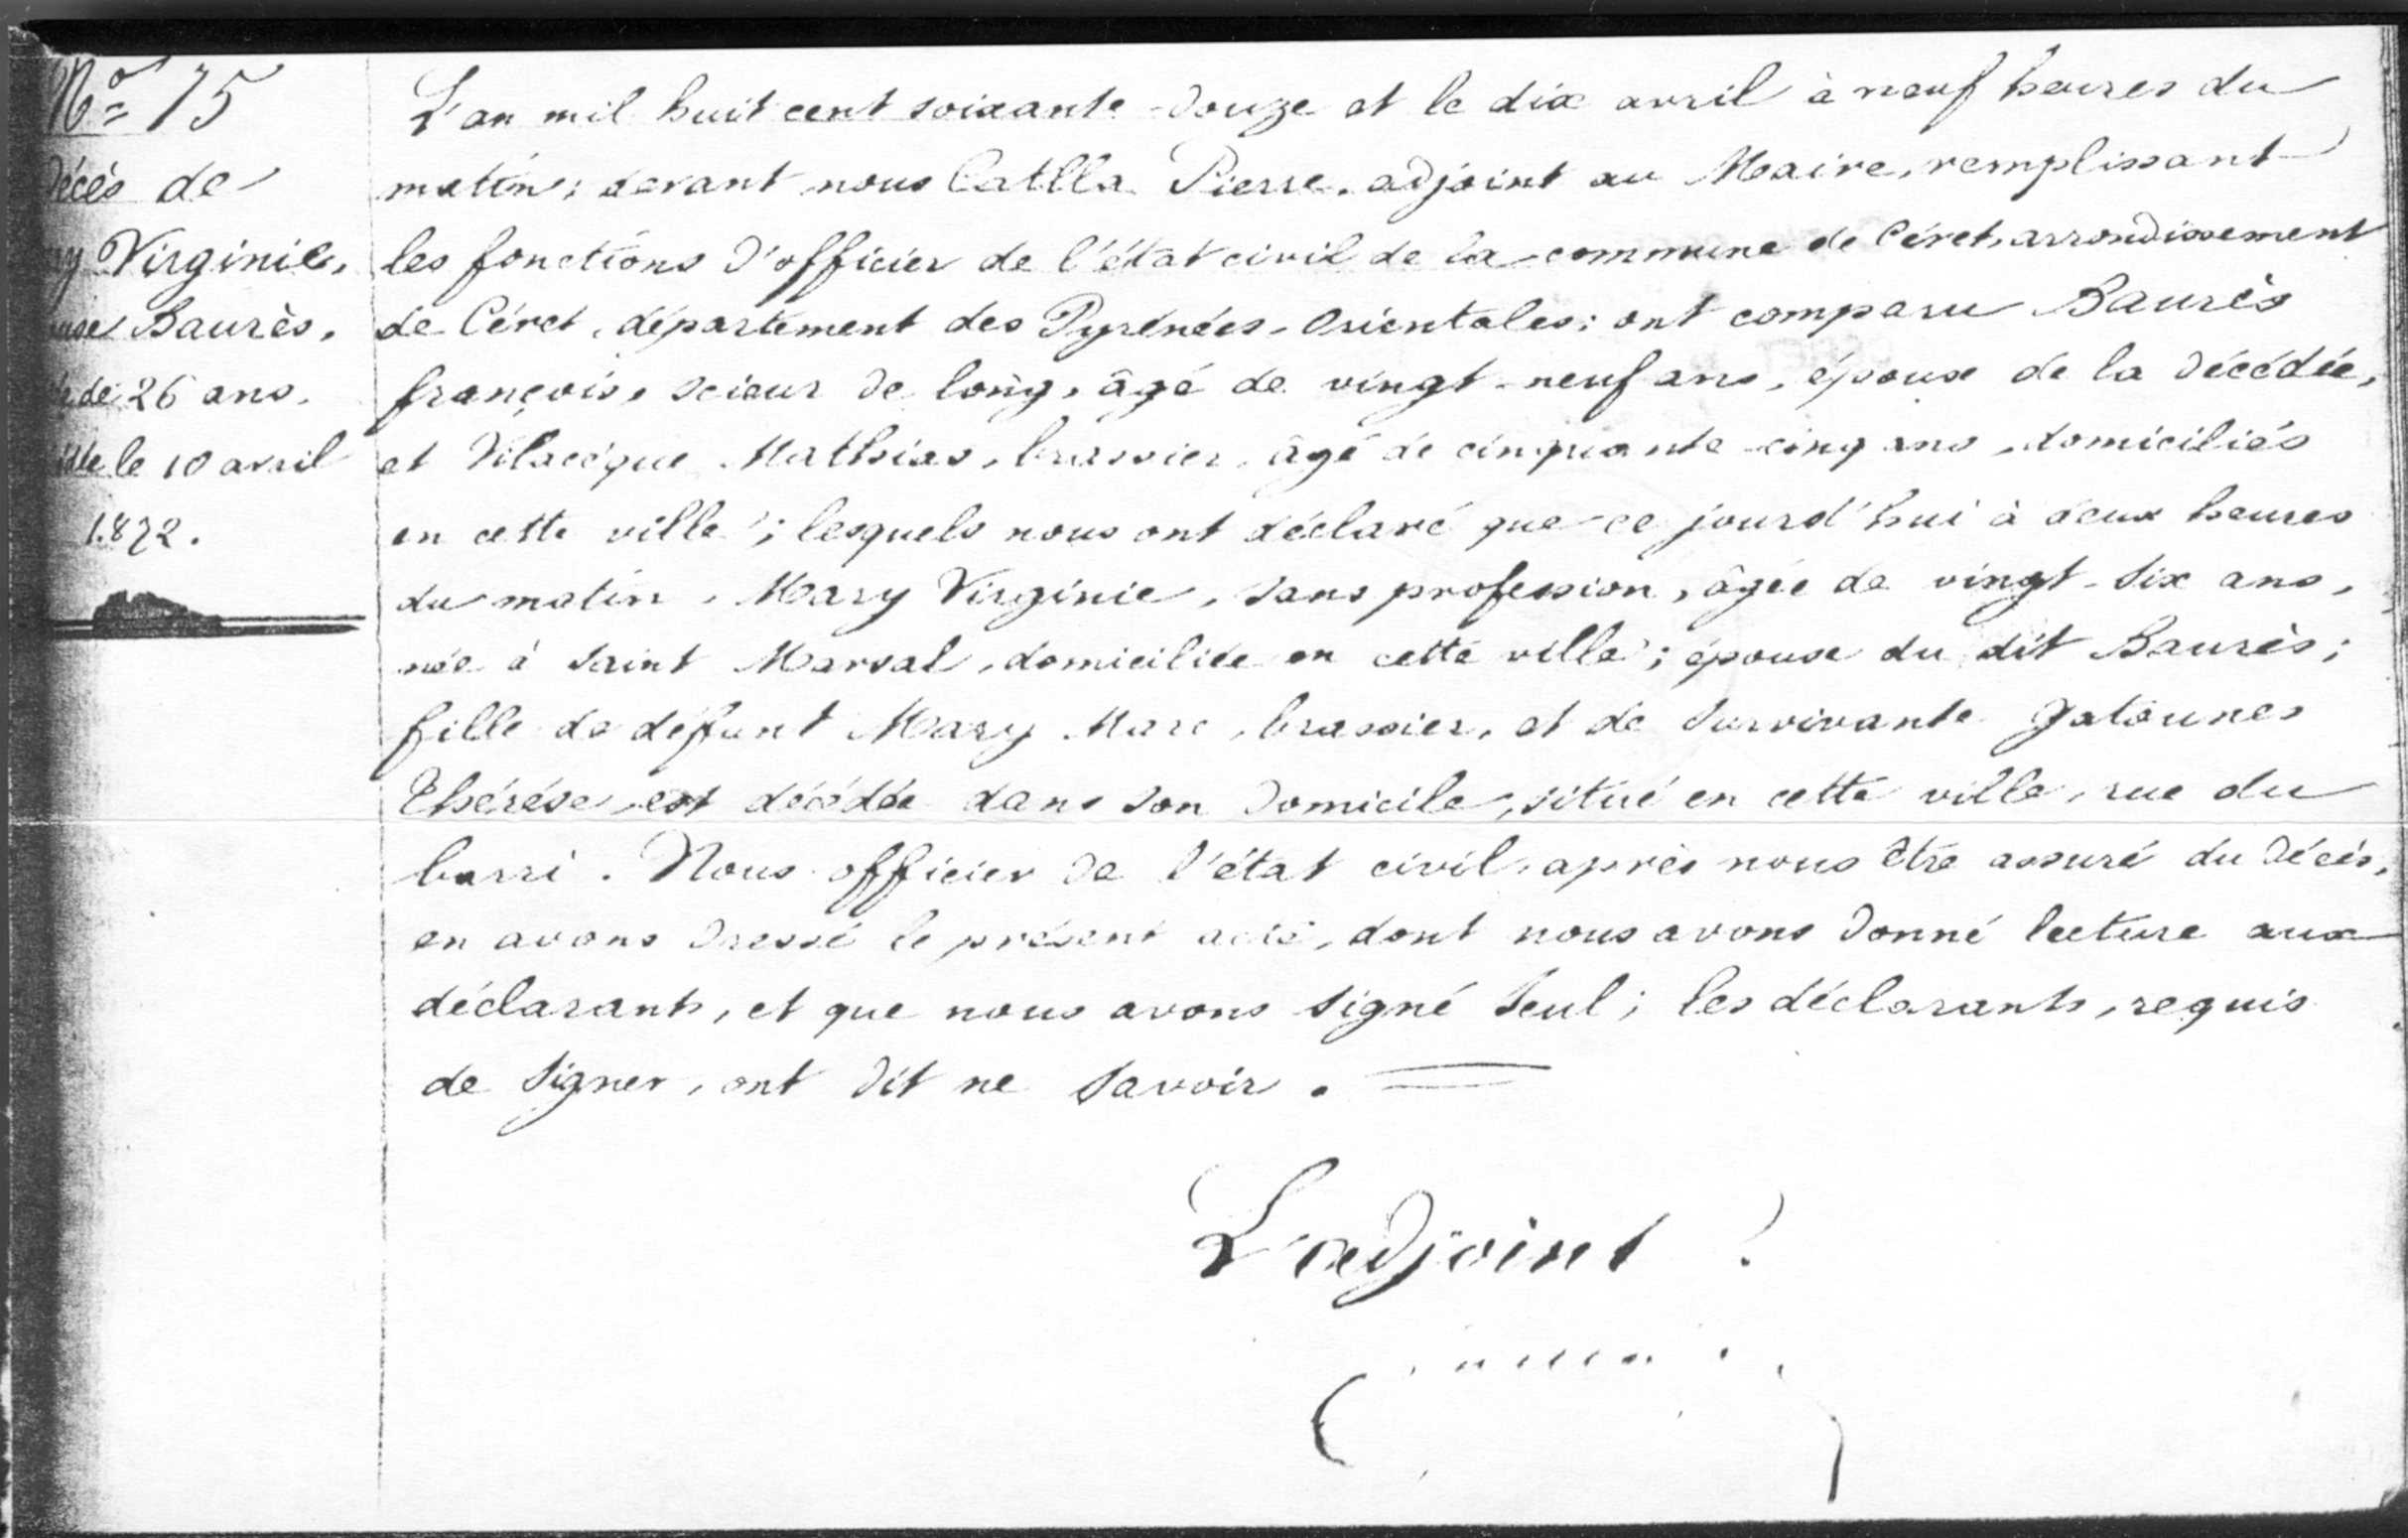 Nº 75
Décès de
Virginie,
Baurès,
de 26 ans.
le 10 avril
1872.
L'an mil huit cent soixante-douze et le dix avril à neuf heures du
matin; devant nous Catlla Pierre, adjoint au Maire, remplissant
les fonctions d'officier de l'état civil de la commune de Céret, arrondissement
de Céret, département des Pyrénées-Orientales; ont comparu Baurès
françois, scieur de long, âgé de vingt-neuf ans, époux de la décédée,
et Vilacèque Mathias, brassier, âgé de cinquante-cinq ans, domiciliés
en cette ville; lesquels nous ont déclaré que ce jourd'hui à deux heures
du matin, Mary Virginie, sans profession, âgée de vingt-six ans,
née à Saint Marsal, domiciliée en cette ville; épouse du dit Baurès;
fille de défunt Mary Marc, brassier, et de survivante
Thérèse, est décédée dans son domicile, situé en cette ville, rue du
barri. Nous officier de l'état civil, après nous être assuré du décès,
en avons dressé le présent acte, dont nous avons donné lecture aux
déclarants, et que nous avons signé seul; les déclarants, requis
de signer, ont dit ne savoir.
L'adjoint